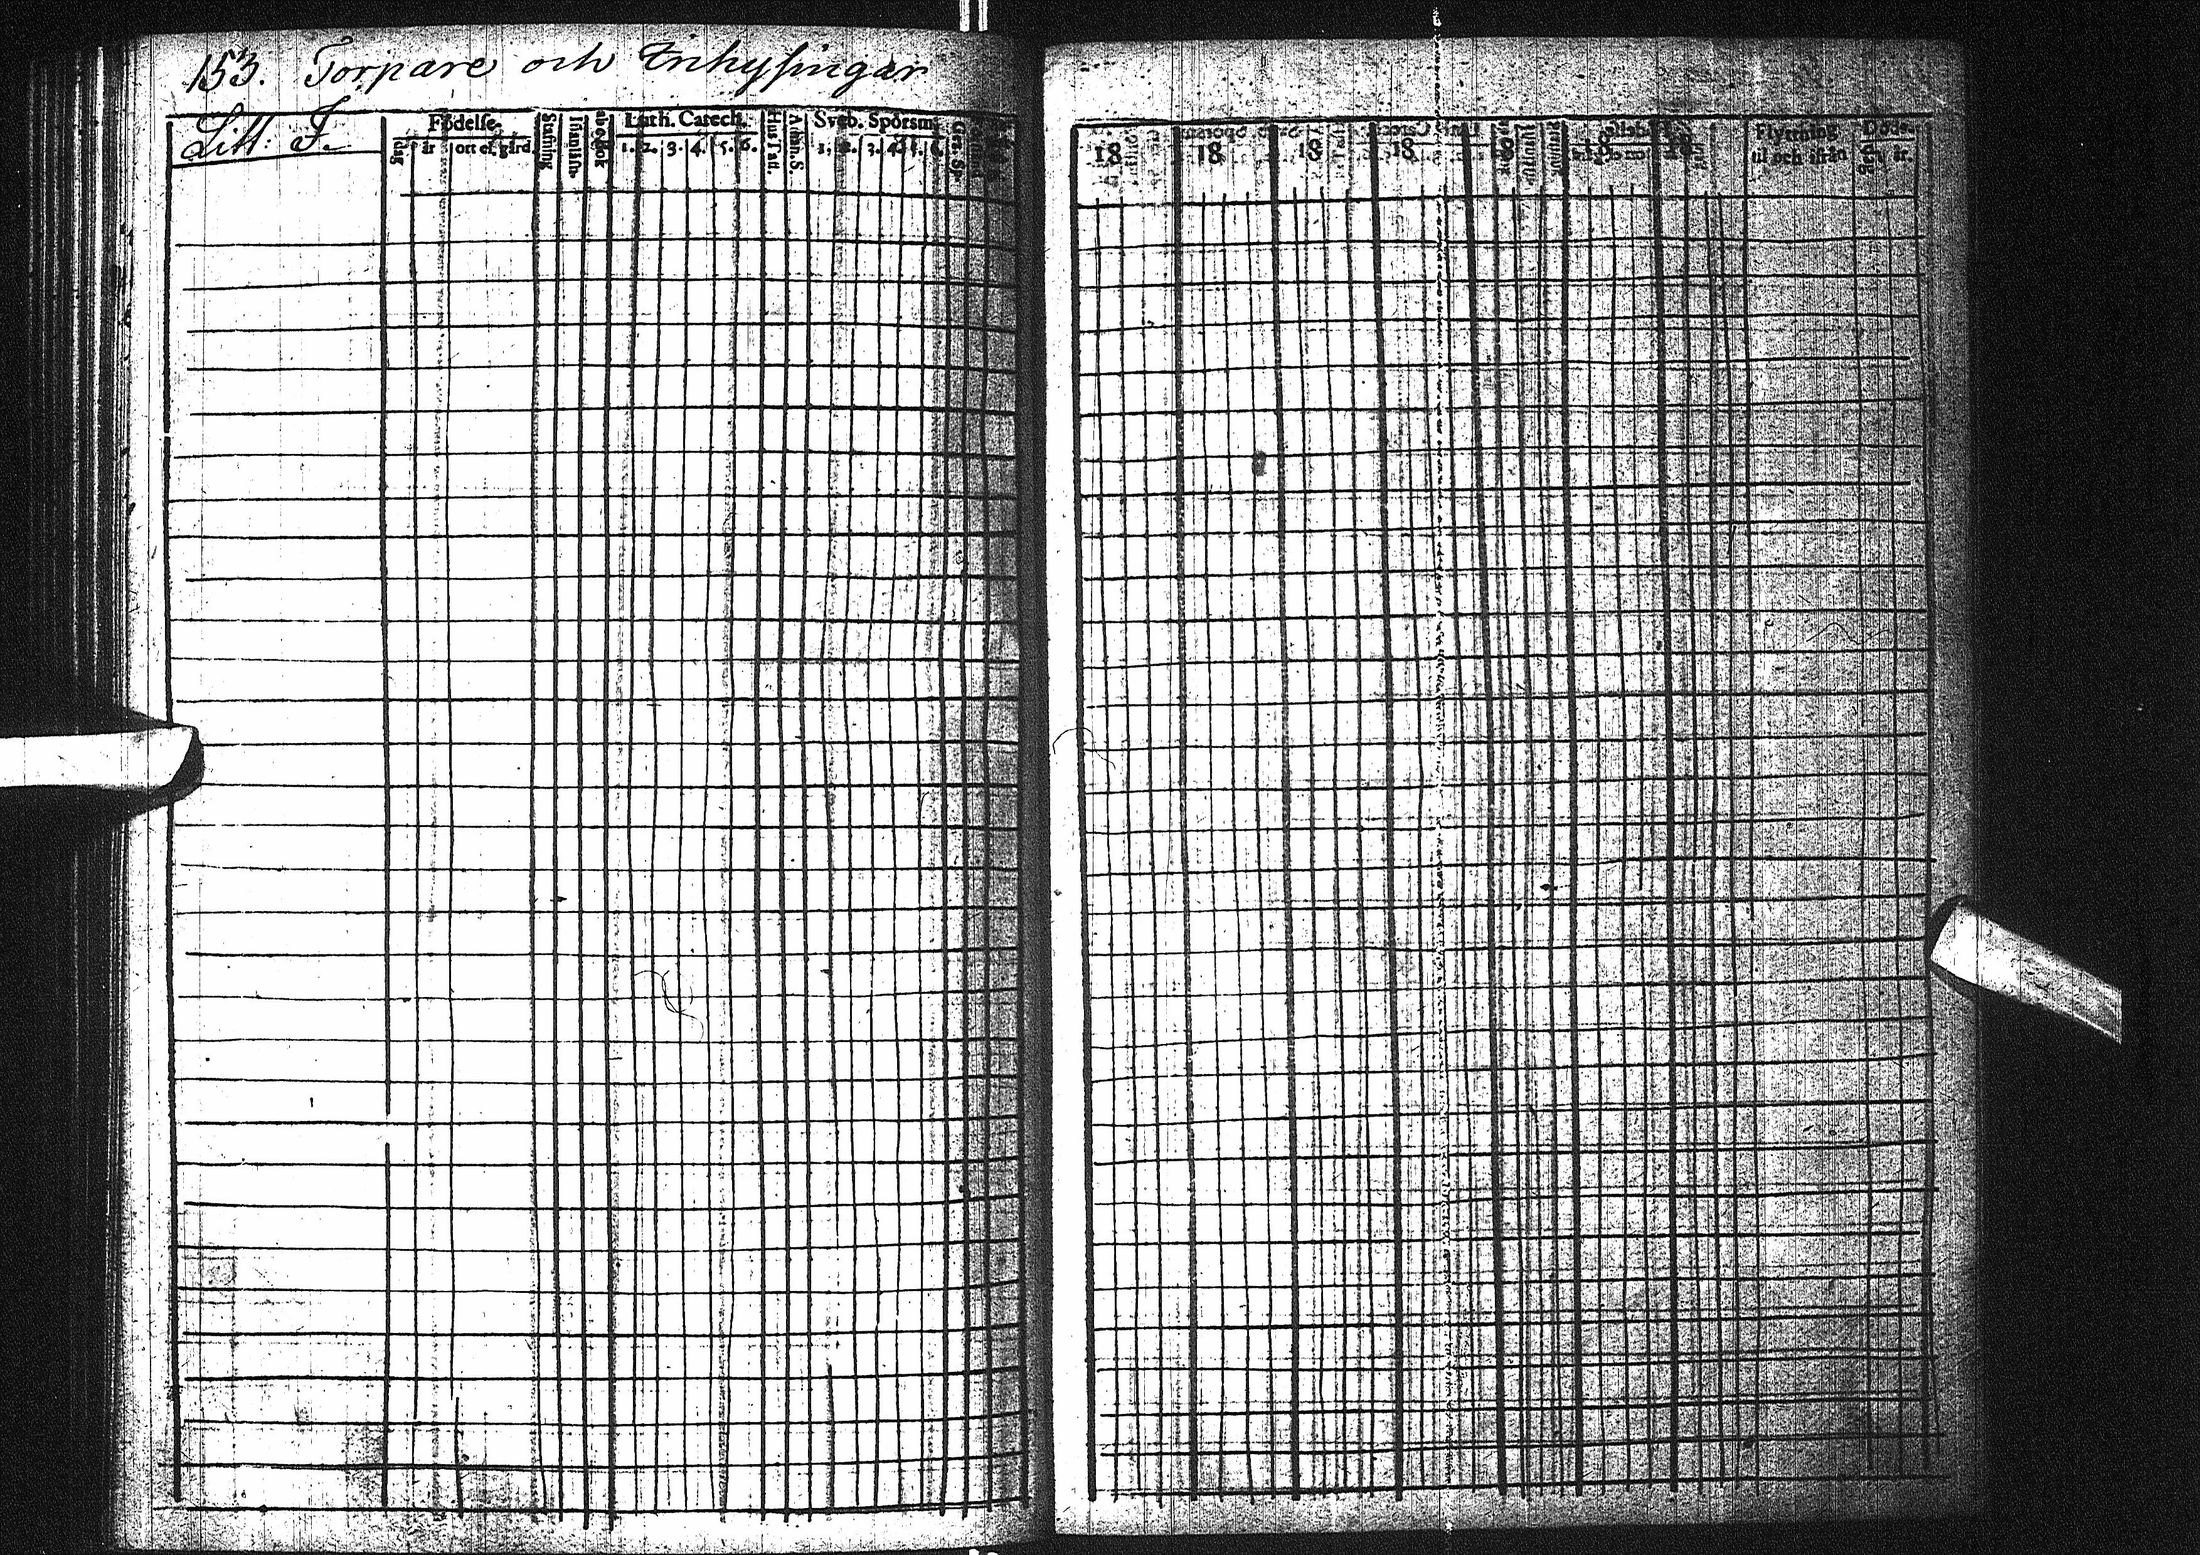 153. Torpare och Inhysingar
Litt: F.
Födelse
dag år ort el. gård.
Stafning
Luth. Catech.
1. 2. 3. 4. 5. 6.
Hus Tafl.
Athan. S.
Sveb. Spörsm.
1. 2. 3. 4. 5. 6.
18 18 18 18 18 18 18
Flyttning
til och ifrån
Döde.
dag år.